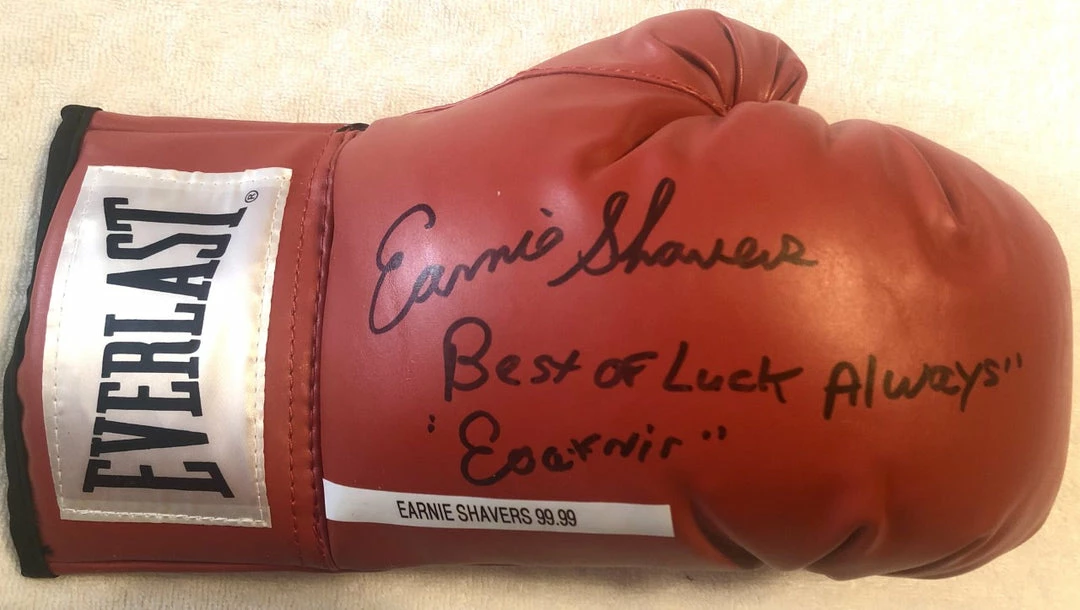 EVERLAST®
Earnie Shavers
Best of Luck Always"
EARNIE SHAVERS 99.99